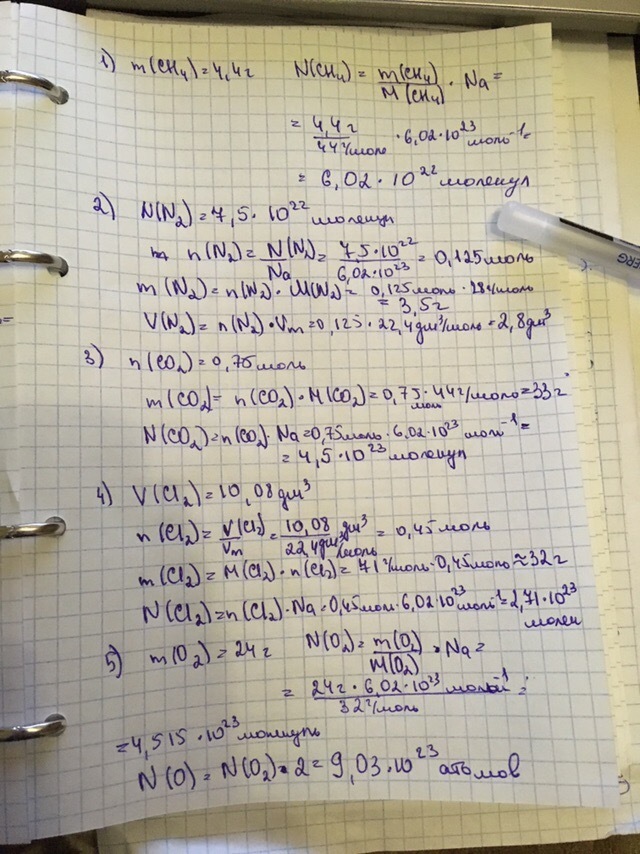 1) m(CH₄) = 4,4г N(CH₄) = m(CH₄)/M(CH₄) · Na =
= 4,4г/44г/моль · 6,02·10²³ моль⁻¹ =
= 6,02 · 10²² молекул
2) N(N₂) = 7,5 · 10²² молекул
n(N₂) = N(N₂)/Na = 75·10²²/6,02·10²³ = 0,125моль
m(N₂) = n(N₂) · M(N₂) = 0,125моль · 28г/моль
= 3,5г
V(N₂) = n(N₂) · Vm = 0,125 · 22,4дм³/моль = 2,8дм³
3) n(CO₂) = 0,75моль
m(CO₂) = n(CO₂) · M(CO₂) = 0,75моль · 44г/моль = 33г
N(CO₂) = n(CO₂) · Na = 0,75моль · 6,02·10²³ моль⁻¹ =
= 4,5·10²³ молекул
4) V(Cl₂) = 10,08дм³
n(Cl₂) = V(Cl₂)/Vm = 10,08дм³/22,4дм³/моль = 0,45моль
m(Cl₂) = M(Cl₂) · n(Cl₂) = 71г/моль · 0,45моль ≈ 32г
N(Cl₂) = n(Cl₂) · Na = 0,45моль · 6,02·10²³ моль⁻¹ = 2,71·10²³
молек
5) m(O₂) = 24г N(O₂) = m(O₂)/M(O₂) · Na =
= 24г · 6,02·10²³ моль⁻¹/32г/моль =
= 4,515·10²³ молекул
N(O) = N(O₂) · 2 = 9,03·10²³ атомов